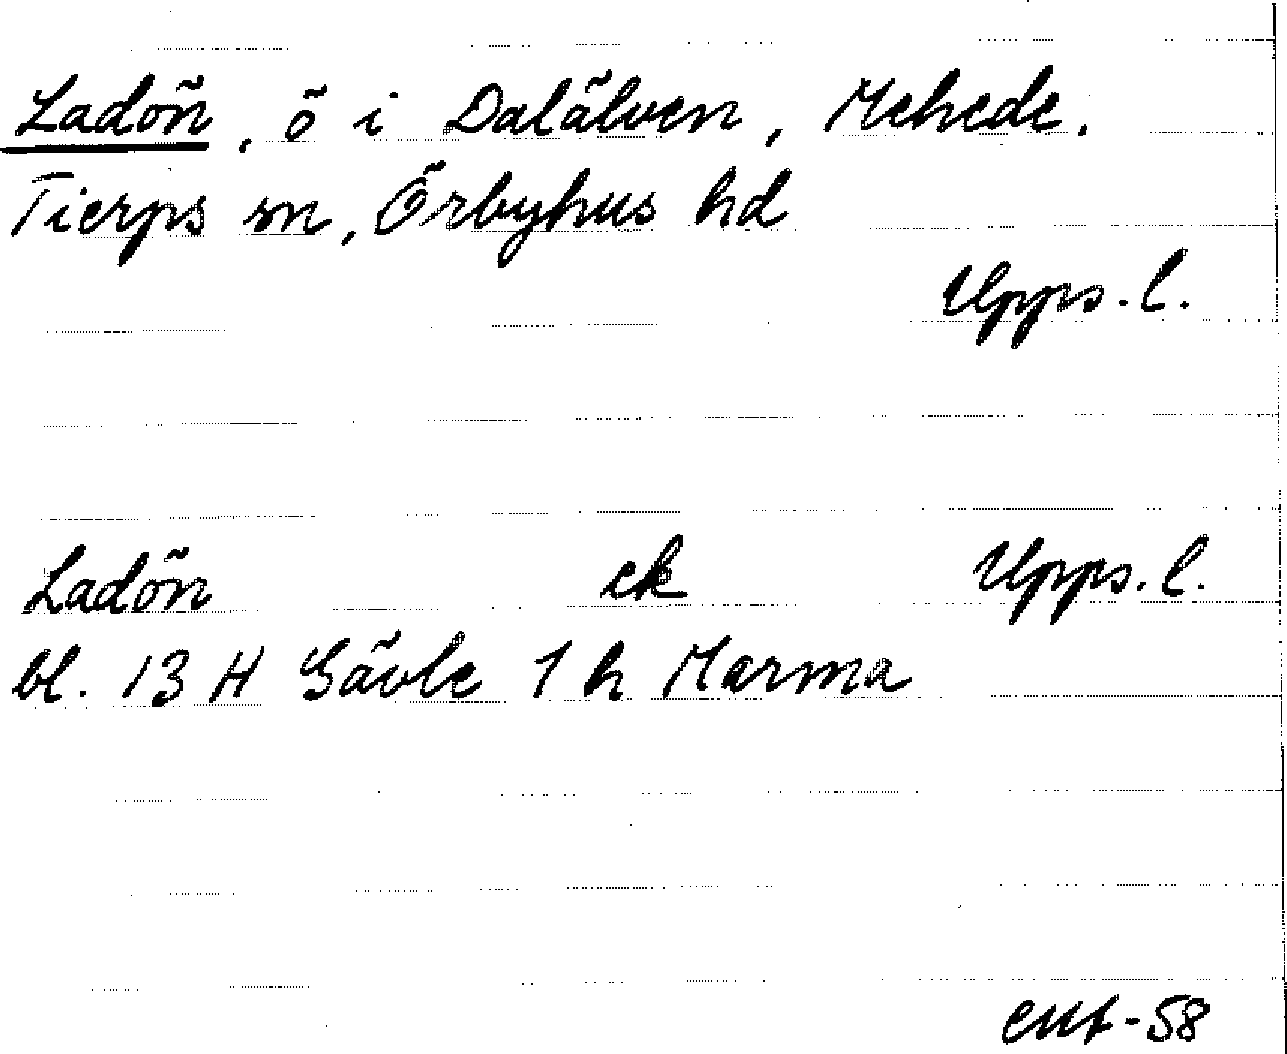 Ladön, ö i Dalälven, Mehede.
Tierps sn, Örbyhus hd
Upps. l.
Ladön ek Upps. l.
bl. 13 H Gävle 1 h Marma
-58